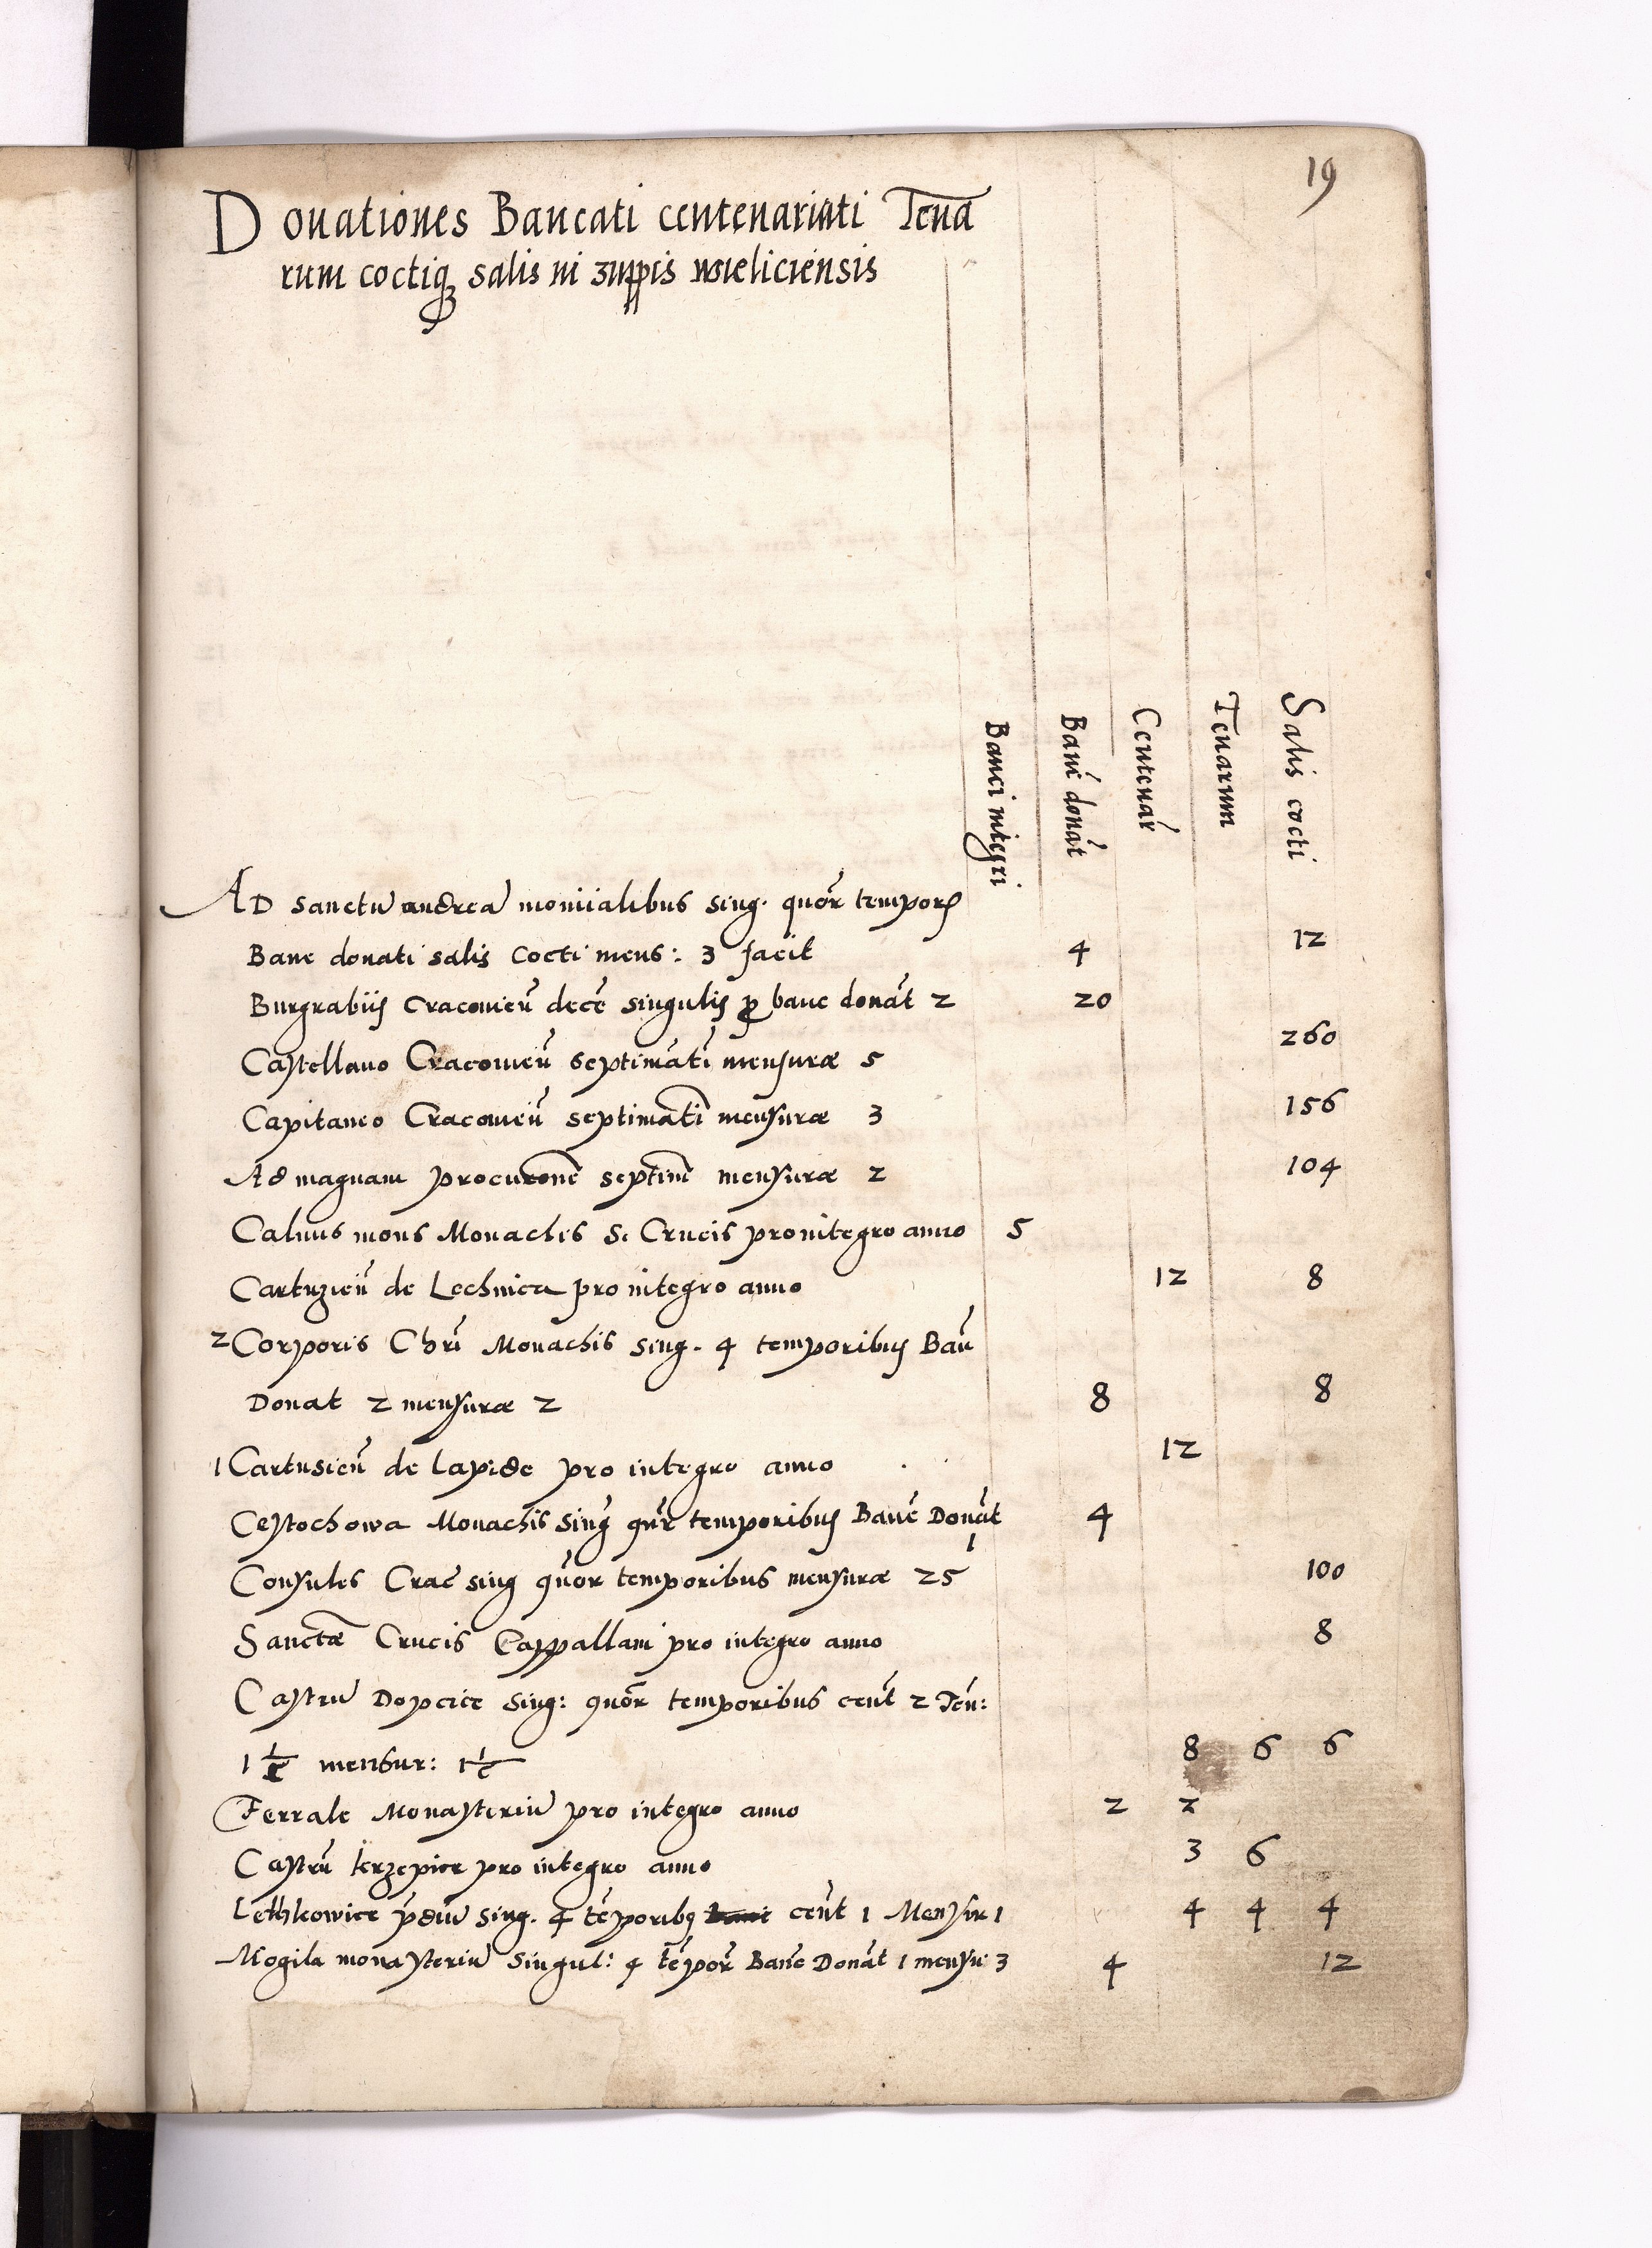 19
Donationes Bancati centenariati Tena
rum coctiq; salis in zuppis wieliciensis
Banci integri
Banč donat́
Centenaŕ
Tenarum
Salis cocti
AD sanctū andreā monialibus sing. quōr tempor
Banc donati salis cocti mens: 3 facit 4 12
Burgrabiis Cracovień decē singulis p banc donat́ 2 20
Castellano Cracovień septimātī mensuræ 5 260
Capitaneo Cracovień septimātī mensuræ 3 156
Ad magnam procurōnē septim̄ mensuræ 2 104
Calvus mons Monachis S. Crucis pro integro anno 5
Cartuzień de Lechnica pro integro anno 12 8
2 Corporis Chrī Monachis sing. 4 temporibus Bań
Donat 2 mensuræ 2 8 8
1 Cartusień de lapide pro integro anno 12
Cestochowa Monachis sinǵ qūr temporibus Banć Donat́ 1 4
Consules Crać sing qūor temporibus mensuræ 25 100
Sanctæ Crucis Cappallani pro integro anno 8
Castrū Dopcice sing: quōr temporibus cent́ 2 Teń:
1 ½ mensur: 1 ½ 8 6 6
Ferrale Monasteriū pro integro anno 2 2
Castrū krzepice pro integro anno 3 6
Lethkowice p̄diū sing. 4 tēporibq cent́ 1 Mensur 1 4 4 4
Mogila monasteriū singul: 4 tēpoŕ Banć Donat́ 1 mensu 3 4 12